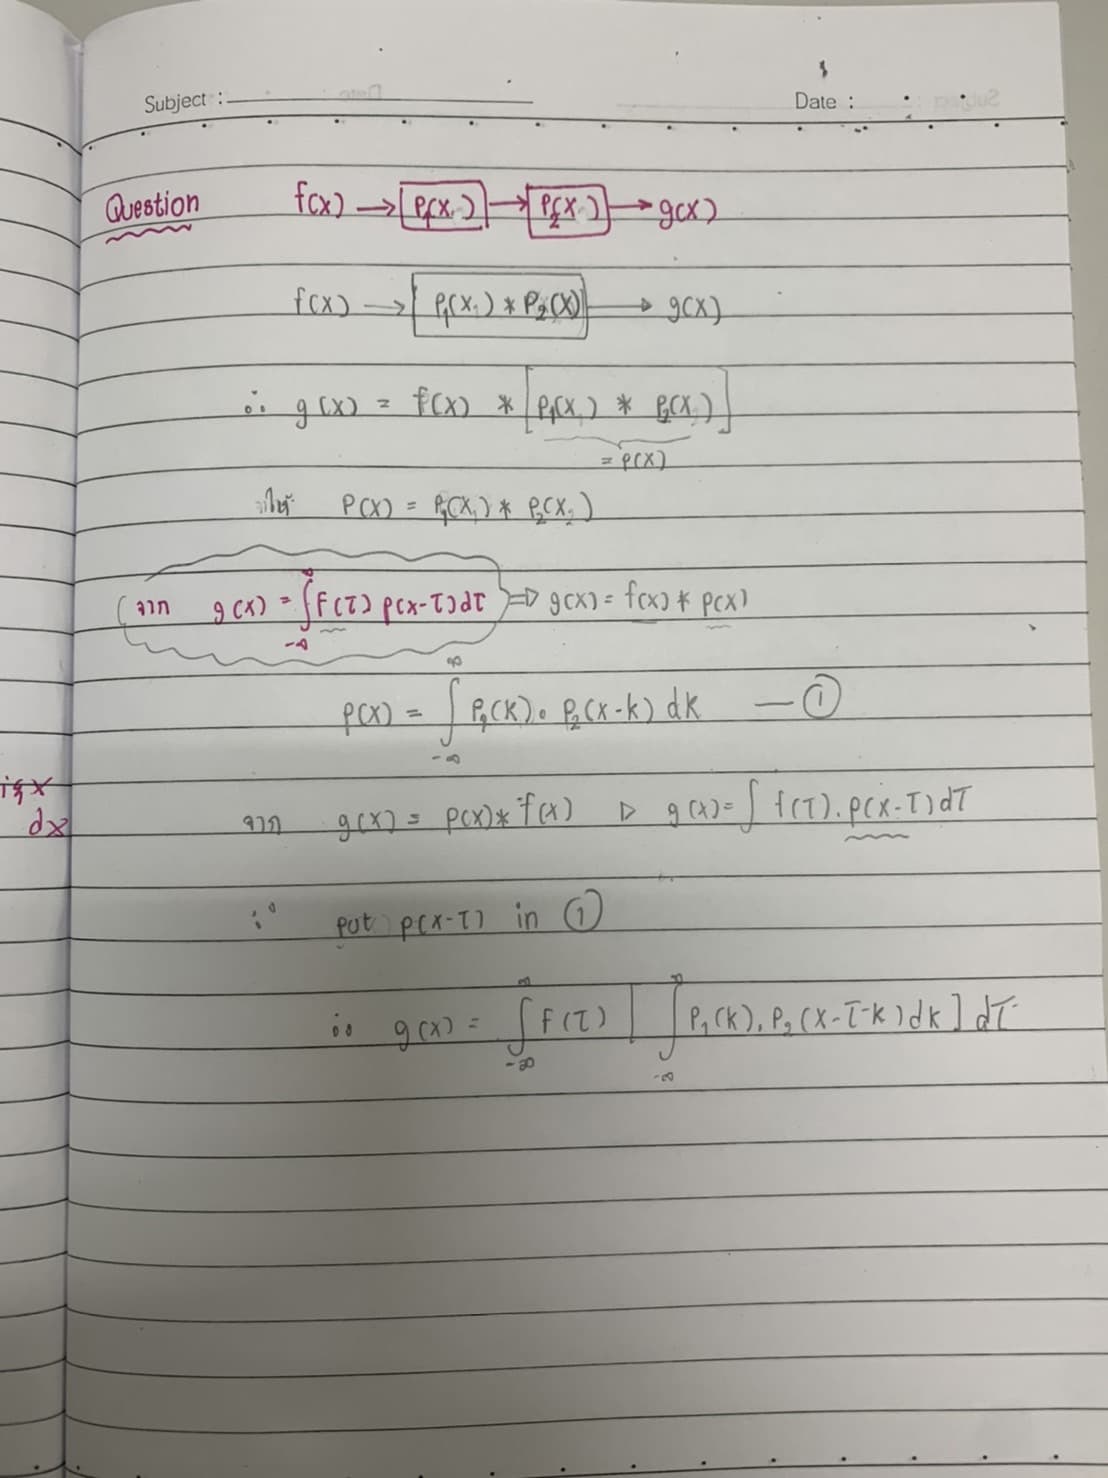 Subject :
Date :
Question f(x) → P₁(x) → P₂(x) → g(x)
f(x) → P₁(x₁) * P₂(x) → g(x)
∴ g(x) = f(x) * [P₁(x) * P₂(x)]
= P(x)
ให้ P(x) = P₁(x₁) * P₂(x₂)
(จาก g(x) = ∫_{-∞}^{∞} F(τ) p(x-τ)dτ ⇒ g(x) = f(x) * p(x)
P(x) = ∫_{-∞}^{∞} P₁(k) · P₂(x-k) dk — ①
dx
จาก g(x) = p(x) * f(x) ▷ g(x) = ∫ f(τ). p(x-τ)dτ
∵ put p(x-τ) in ①
∴ g(x) = ∫_{-∞}^{∞} F(τ) [ ∫_{-∞}^{∞} P₁(k). P₂(x-τ-k)dk ] dτ